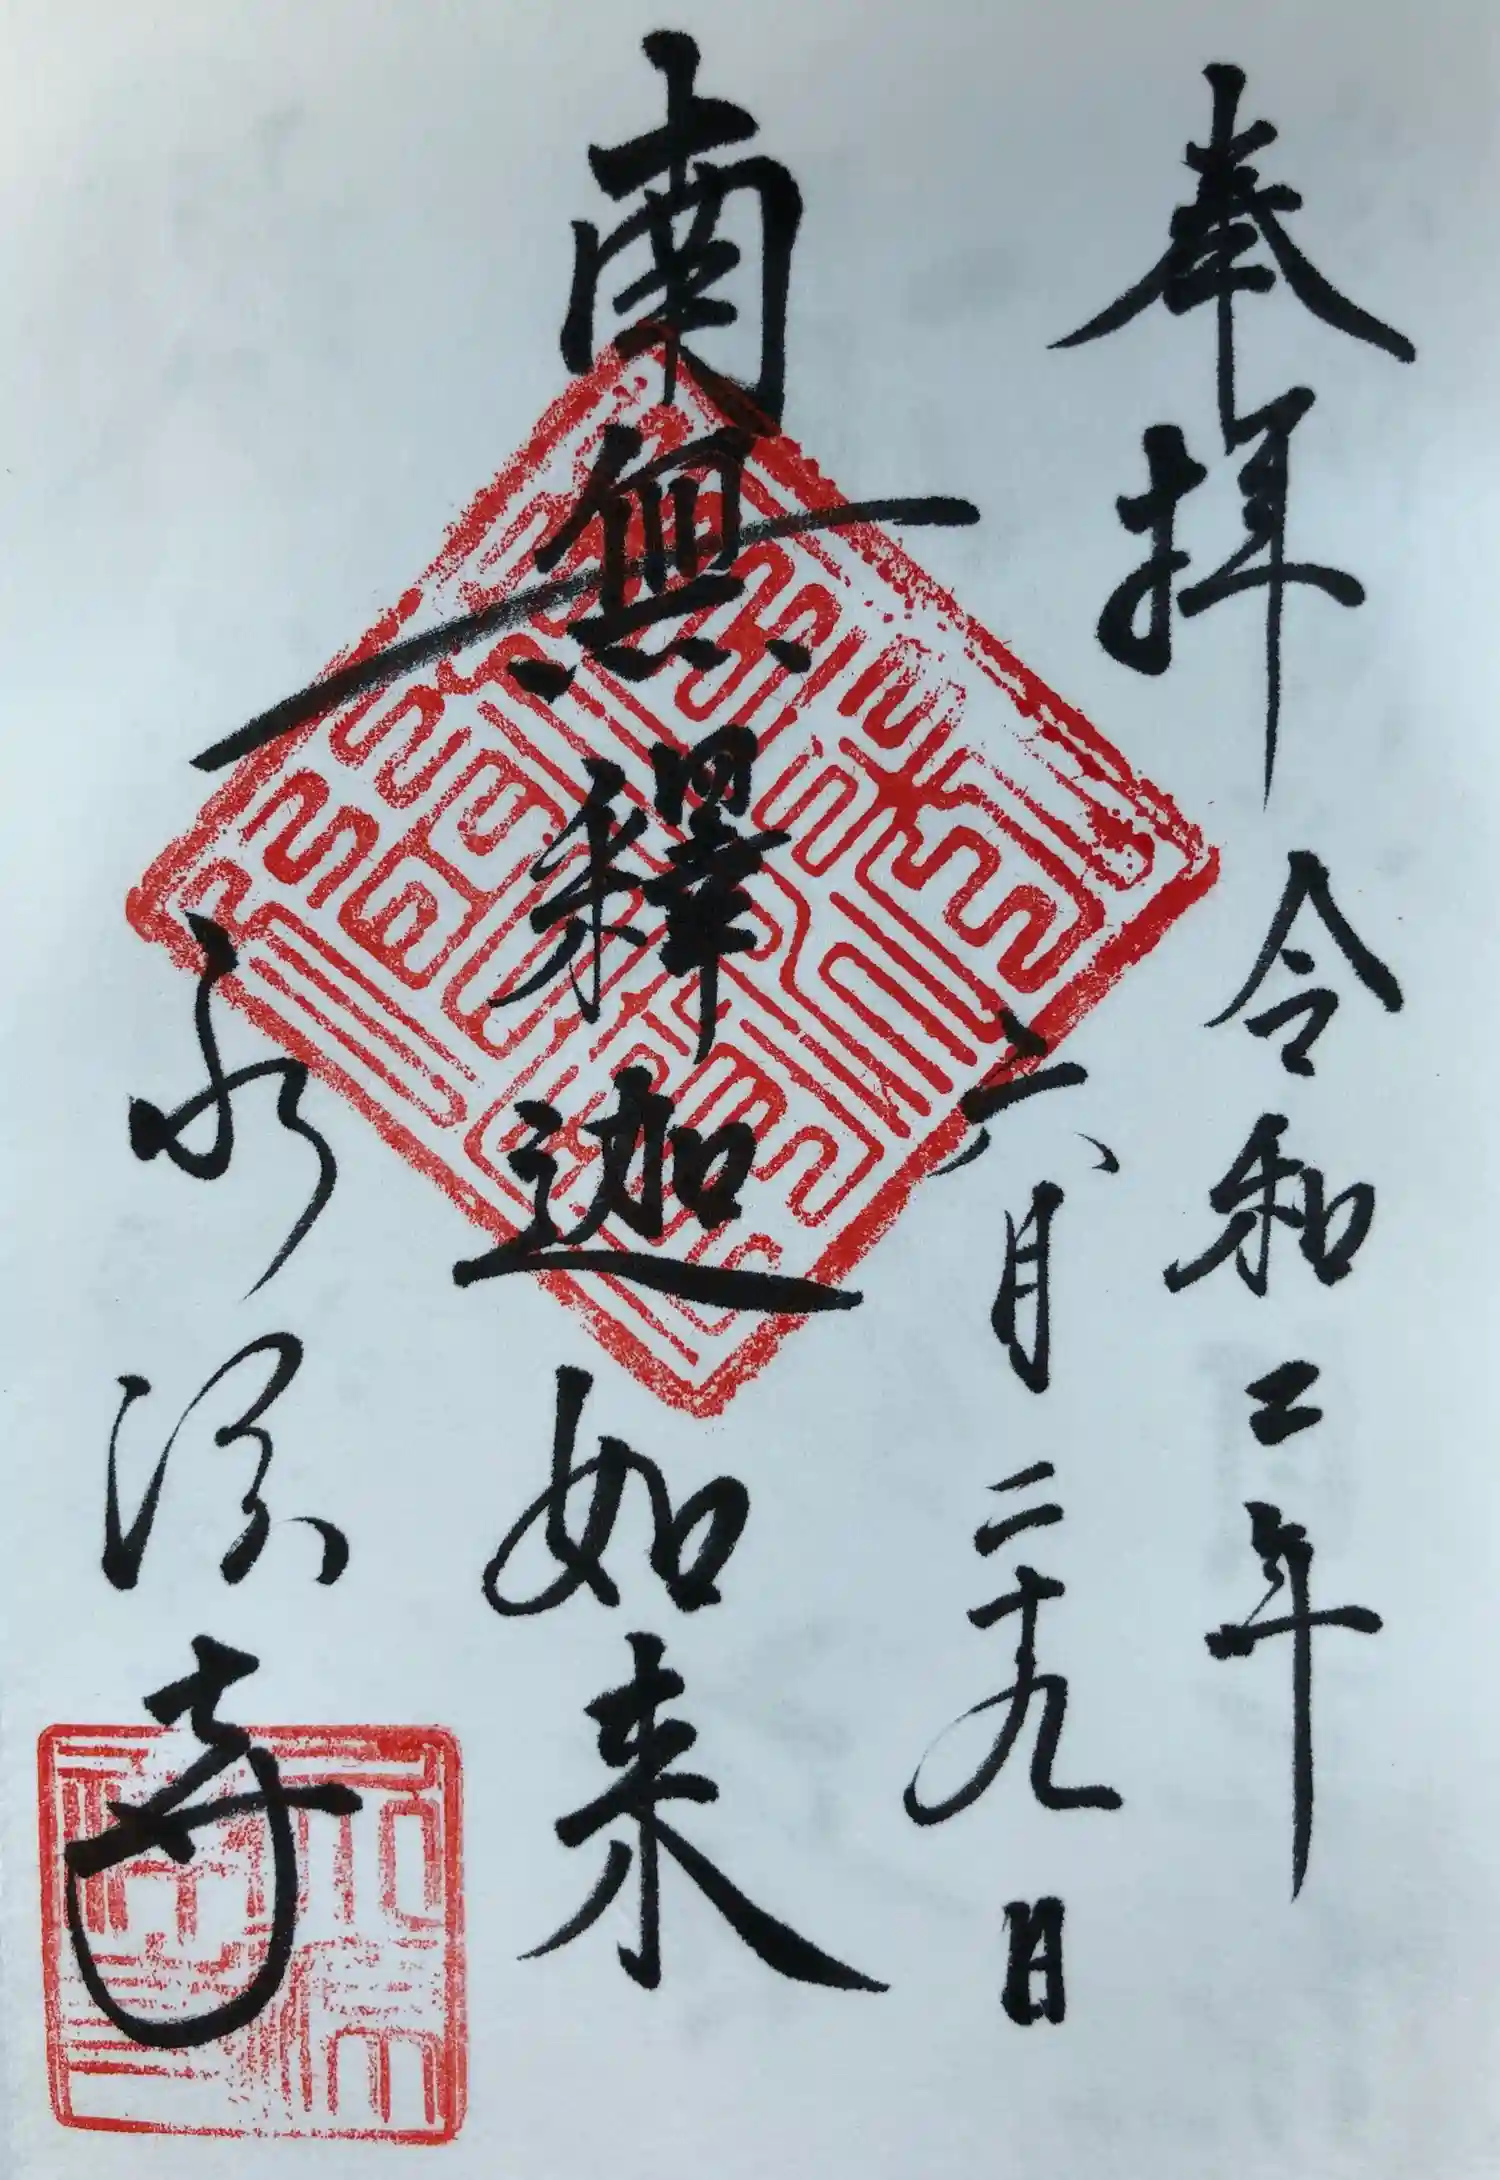 奉拝
令和二年
六月二十九日
南無釋迦如来
永源寺